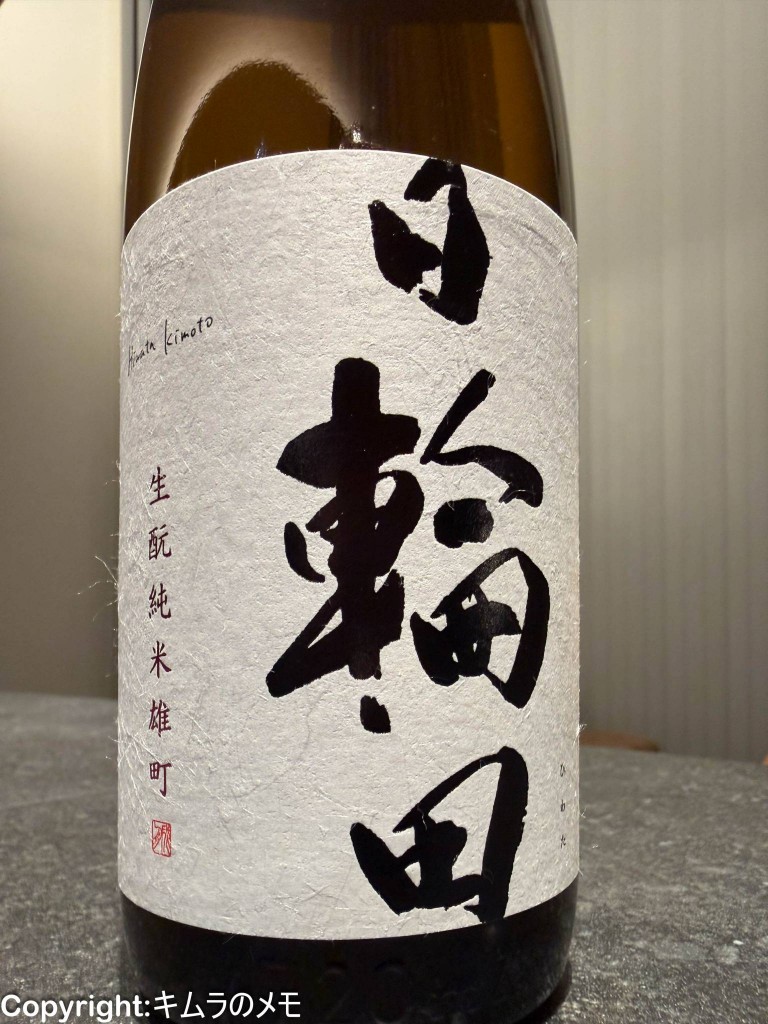 日輪田
ひわた
Hiwata Kimoto
生酛純米雄町
Copyright:キムラのメモ